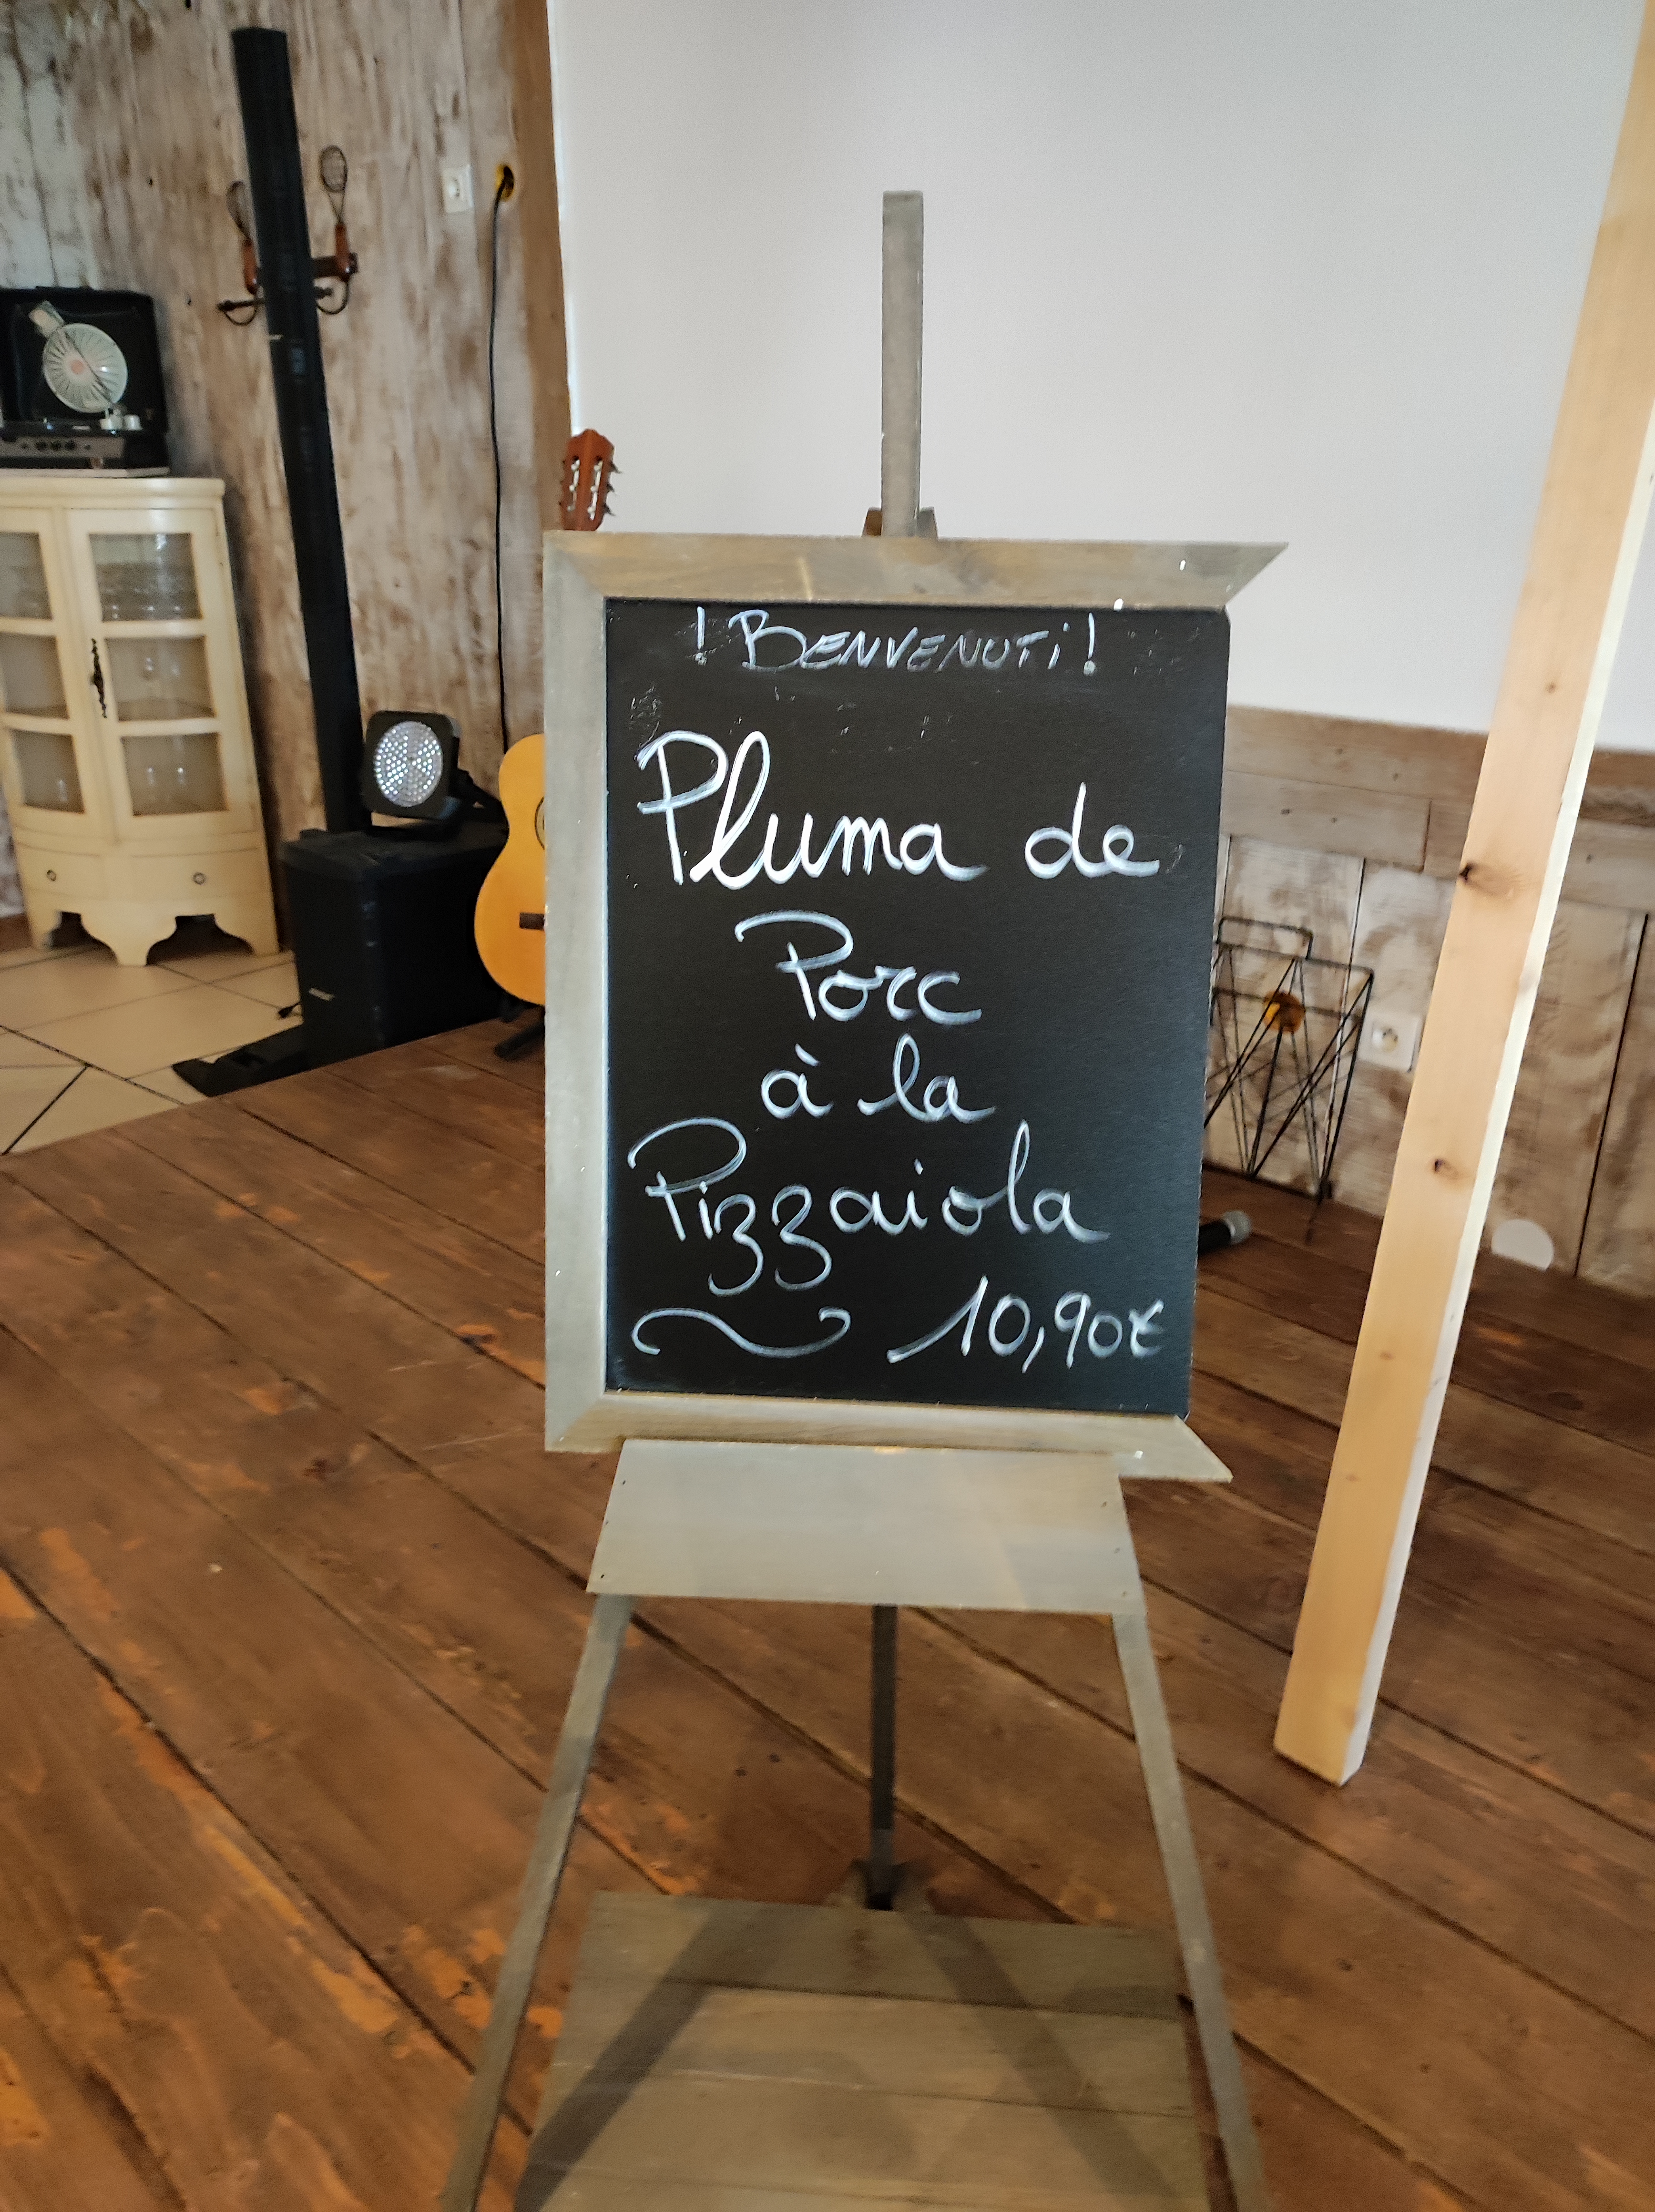 ! BENVENUTi !
Pluma de
Porc
à la
Pizzaiola
10,90€